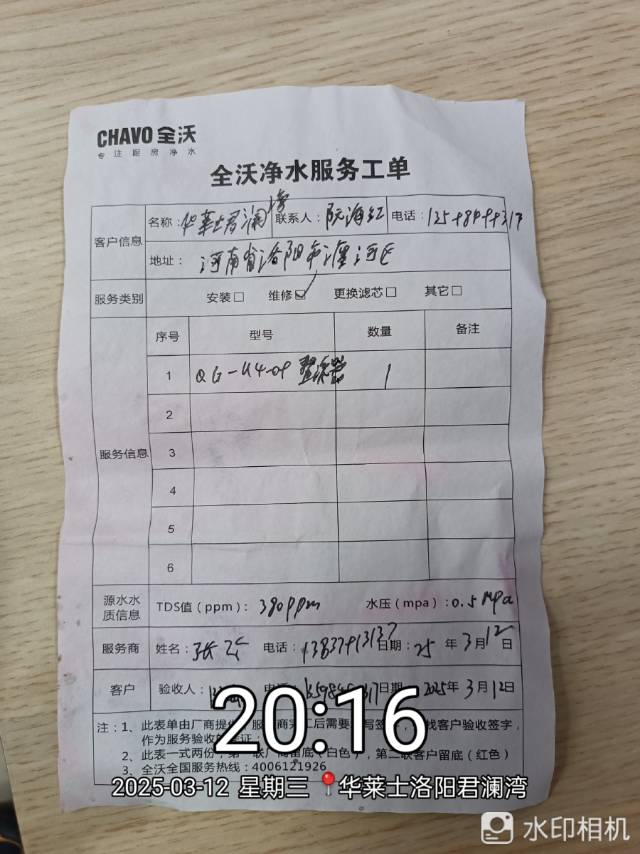 CHAVO 全沃
专注厨房净水
全沃净水服务工单
客户信息 名称：华莱士君澜湾 联系人：阮海红 电话：
地址：河南省洛阳市瀍河区
服务类别 安装□ 维修☑ 更换滤芯□ 其它□
服务信息 序号 型号 数量 备注
1 QG-U4-09 1
2
3
4
5
6
源水水质信息 TDS值（ppm）：390ppm 水压（mpa）：0.5Mpa
服务商 姓名：张 电话： 日期：25年3月12日
客户 验收人： 日期：2025年3月12日
注：1、此表单由厂商提 服务商完工后需要 写 找客户验收签字，
作为服务验收 证；
2、此表一式两份，第一联厂商留底（白色），第二联客户留底（红色）
3、全沃全国服务热线：4006121926
20:16
2025-03-12 星期三 📍华莱士洛阳君澜湾
水印相机